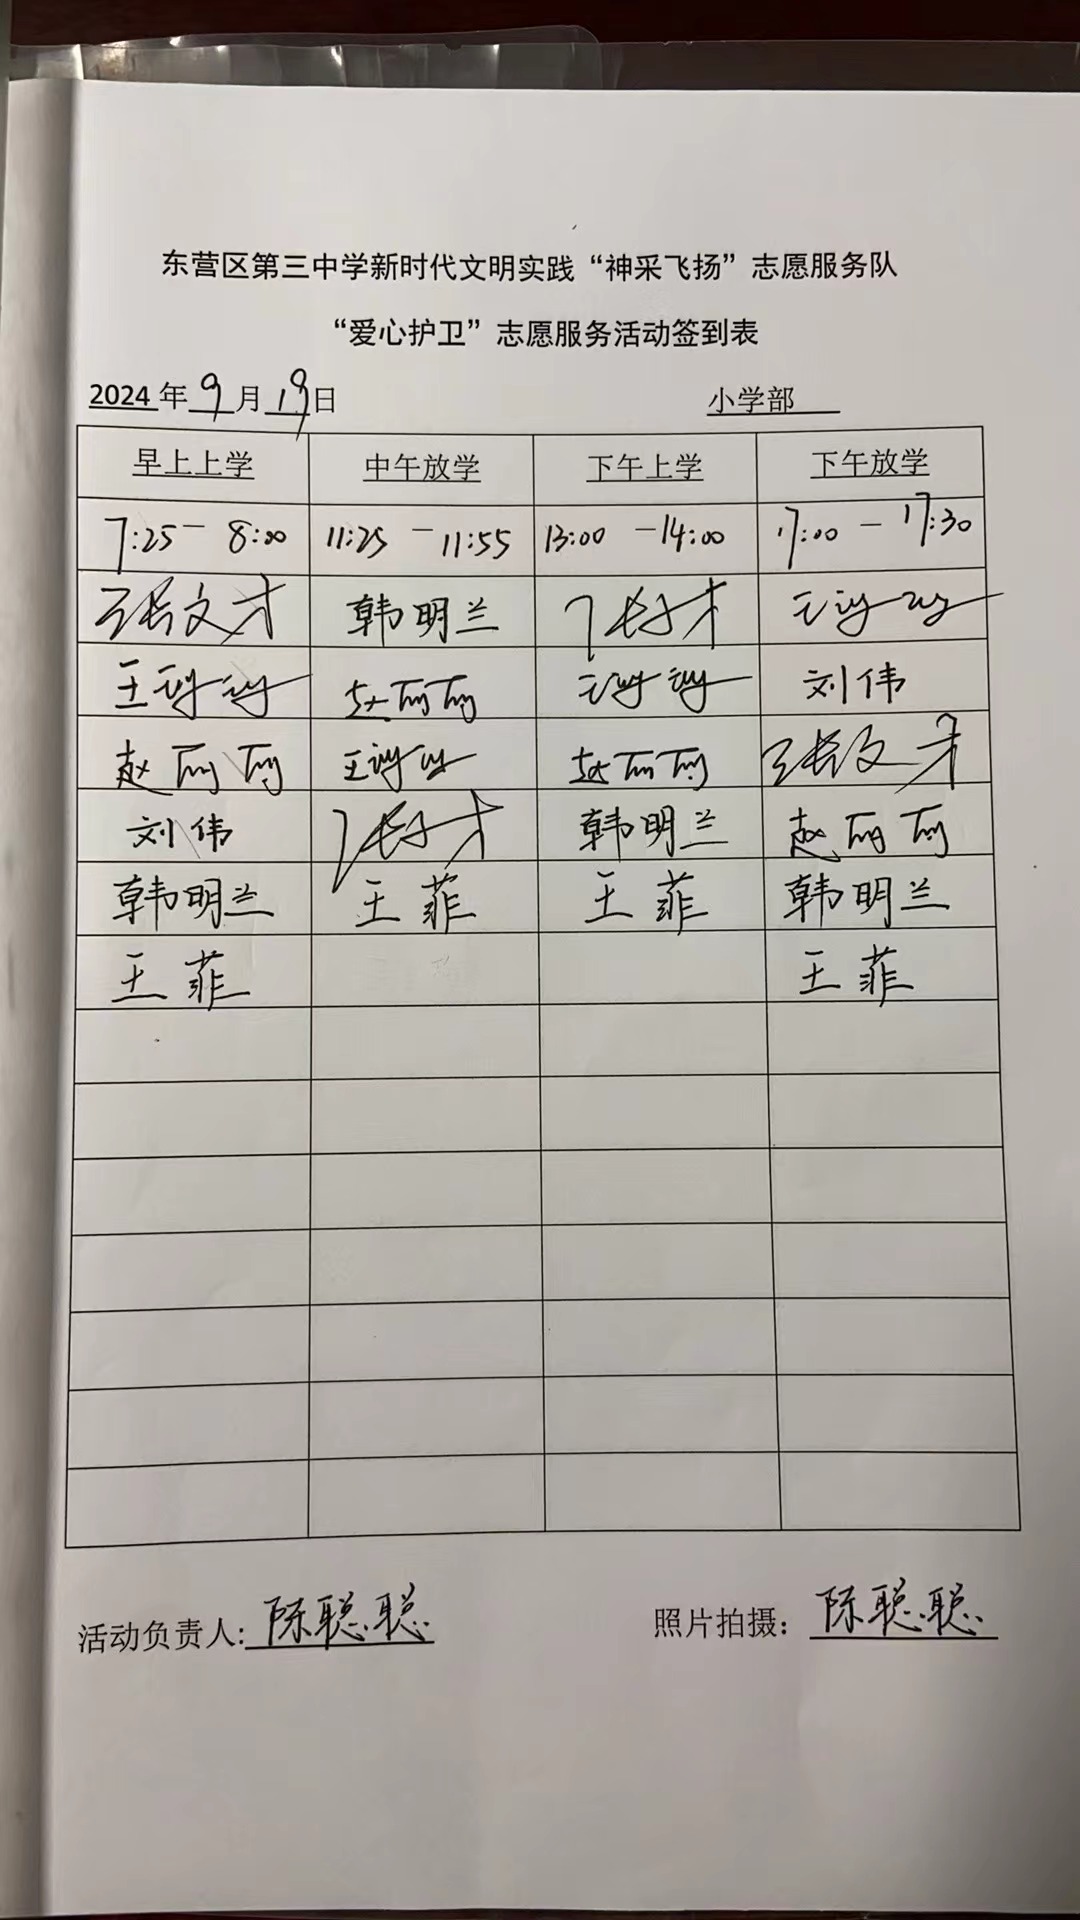 东营区第三中学新时代文明实践“神采飞扬”志愿服务队
“爱心护卫”志愿服务活动签到表
2024年9月19日 小学部
早上上学 中午放学 下午上学 下午放学
7:25-8:00 11:25-11:55 13:00-14:00 17:00-17:30
张文才 韩明兰 张才 王
王 赵丽丽 王 刘伟
赵丽丽 王 赵丽丽 张文才
刘伟 张才 韩明兰 赵丽丽
韩明兰 王菲 王菲 韩明兰
王菲 王菲
活动负责人:陈聪聪 照片拍摄：陈聪聪